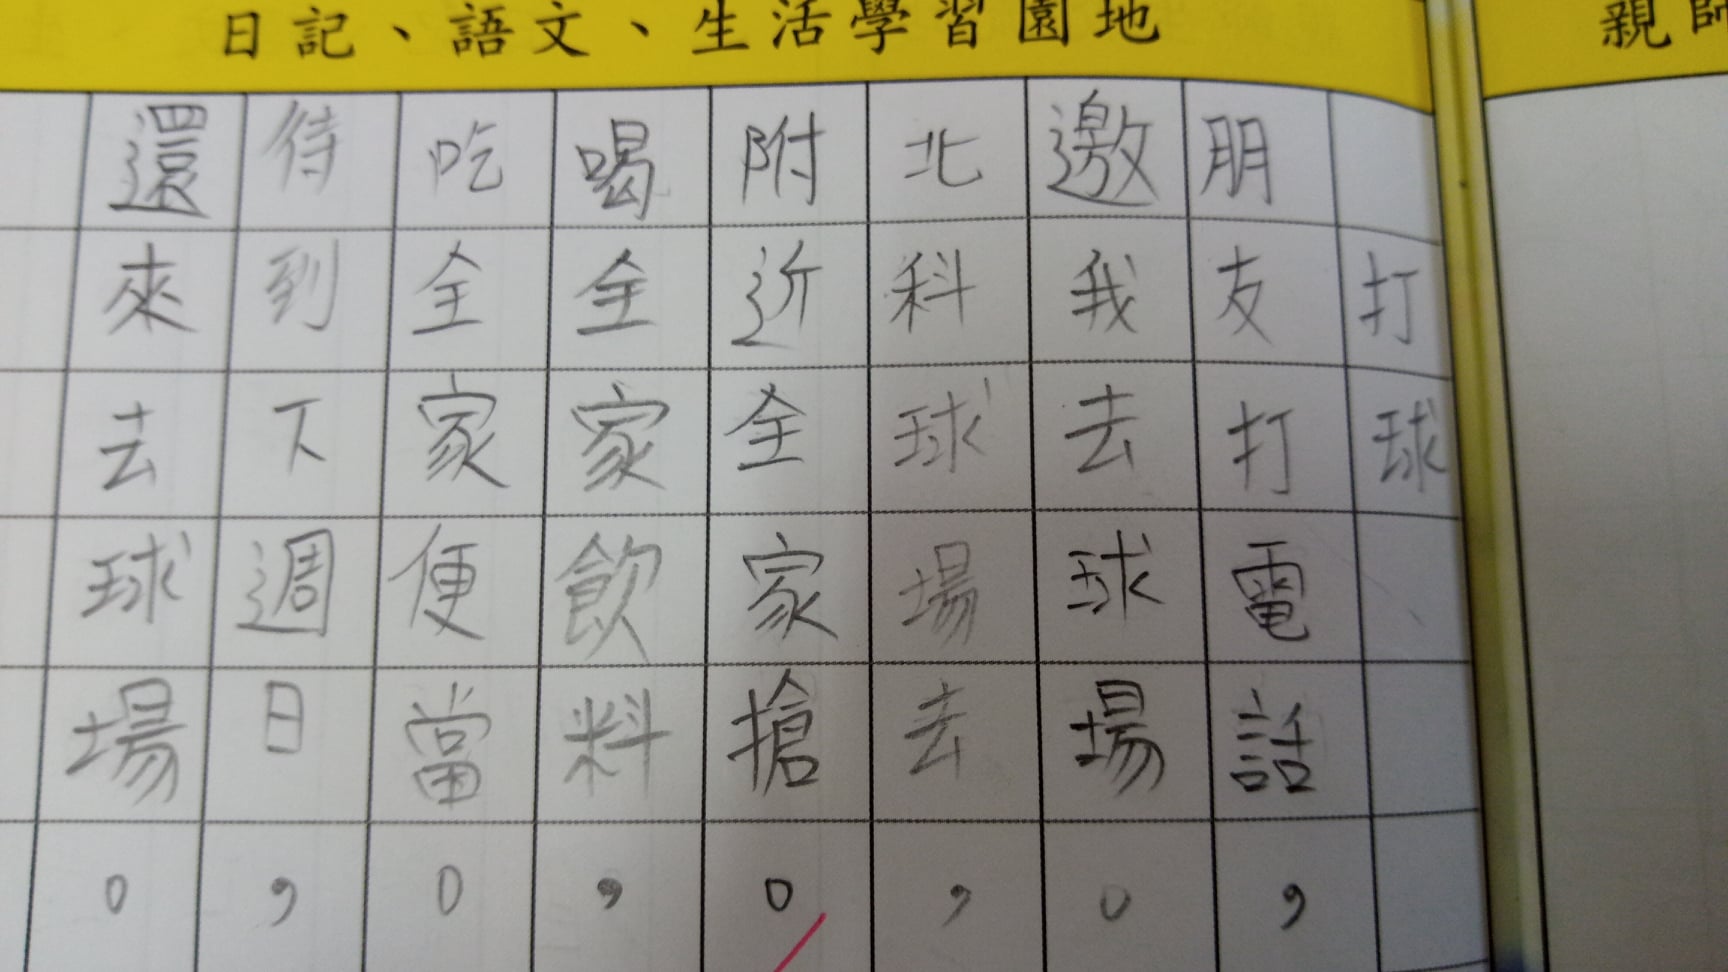 日記、語文、生活學習園地
親師
打球
朋友打電話，
邀我去球場。
北科球場去，
附近全家搶。
喝全家飲料，
吃全家便當。
待到下週日，
還來去球場。